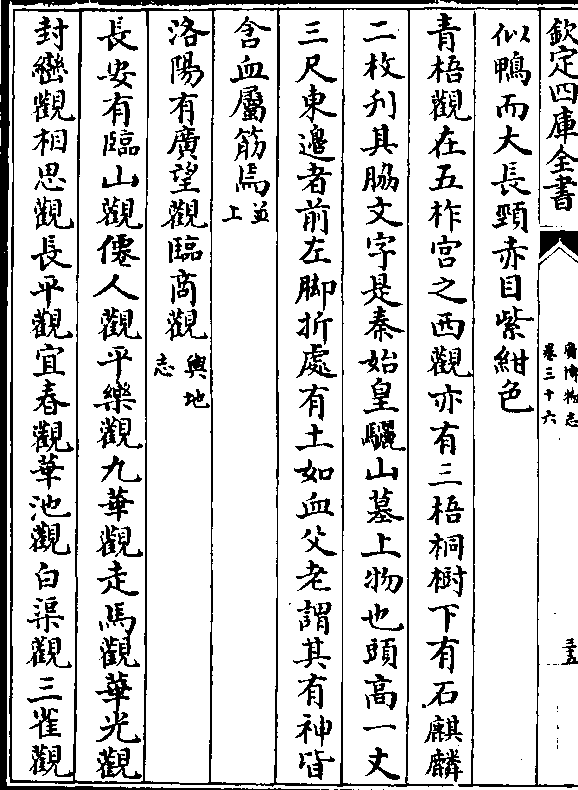 欽定四庫全書
廣博物志
卷三十六
三五
似鴨而大長頸赤目紫紺色
青梧觀在五柞宮之西觀亦有三梧桐樹下有石麒麟
二枚刋其脇文字是秦始皇驪山墓上物也頭高一丈
三尺東邉者前左脚折處有土如血父老謂其有神皆
含血屬筋焉並上
洛陽有廣望觀臨商觀輿地志
長安有臨山觀僊人觀平樂觀九華觀走馬觀華光觀
封巒觀相思觀長平觀宜春觀華池觀白渠觀三雀觀